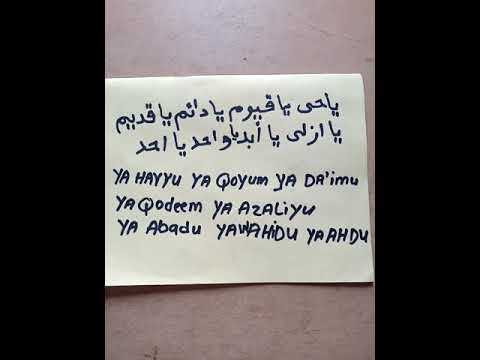 ياحى يا قيوم يا دائم يا قديم
يا ازلى يا أبد يا واحد يا احد
YA HAYYU YA Qoyum YA DA'imu
YA Qodeem YA AZALiyu
YA Abadu YAWAHiDU YAAHDU